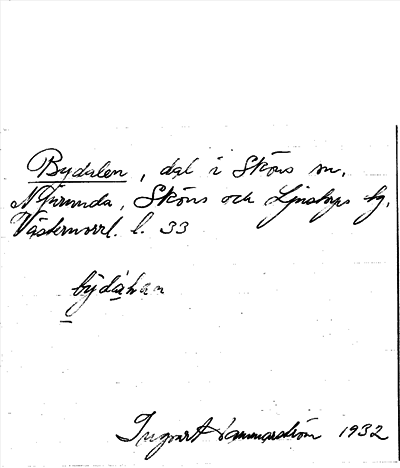 Bydalen, dal i Sköns sn.
Njurunda, Sköns och Ljustorps tg,
Västernorrl. l. 33
Ingvar Hammarström 1932